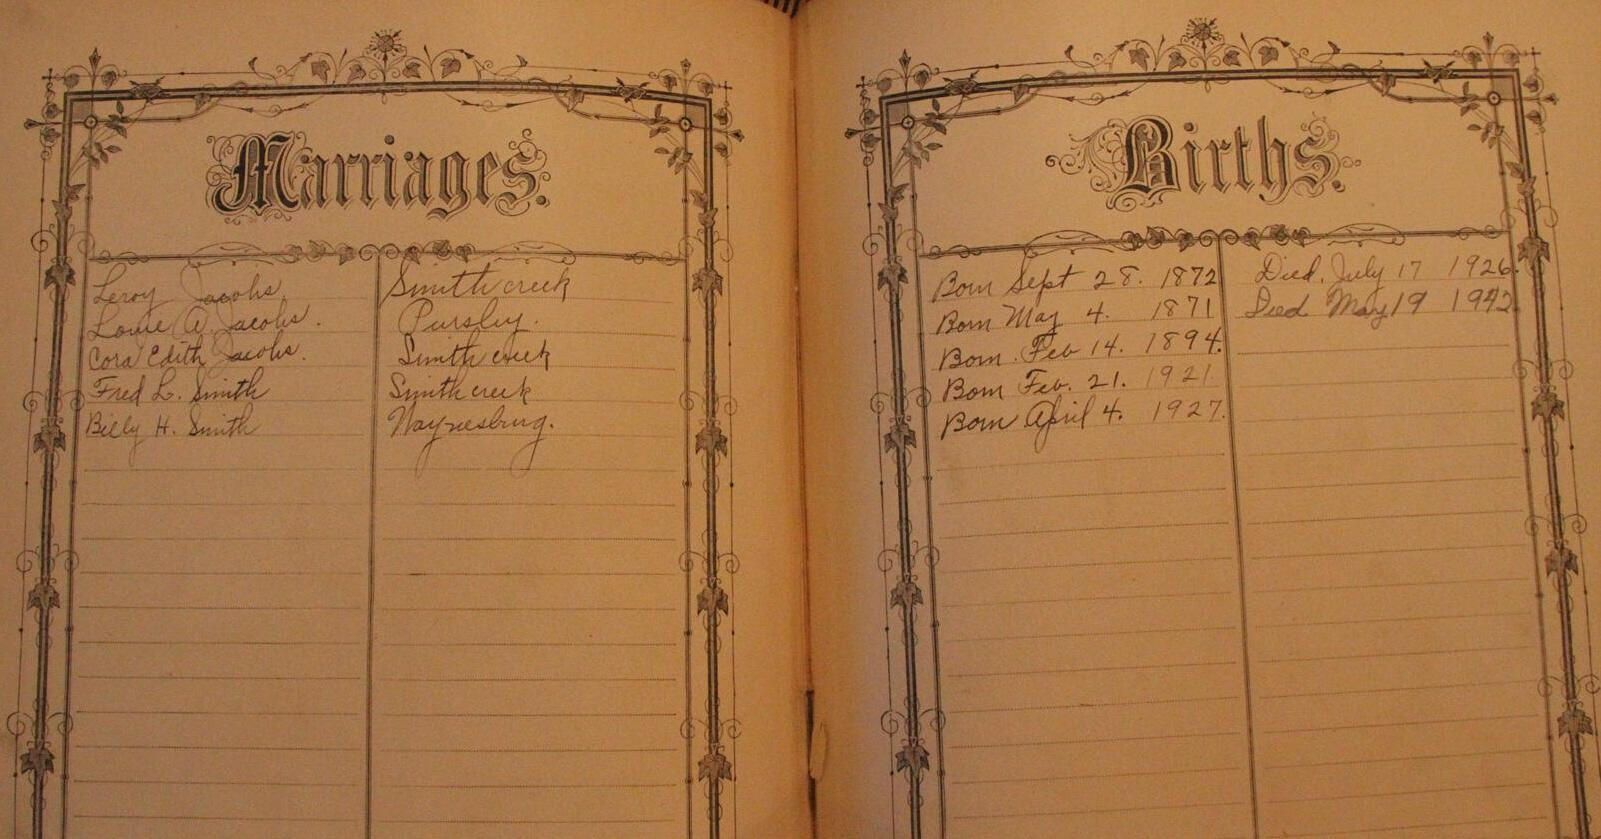 Marriages.
Leroy Jacobs Smith creek
A. Jacobs. Pursley.
Cora Edith Jacobs. Smith creek
Fred L. Smith Smith creek
Billy H. Smith Waynesburg.
Births.
Born Sept 28. 1872 Died. July 17 1926.
Born May 4. 1871 Died May 19 1942.
Born. Feb 14. 1894.
Born Feb. 21. 1921.
Born April 4. 1927.